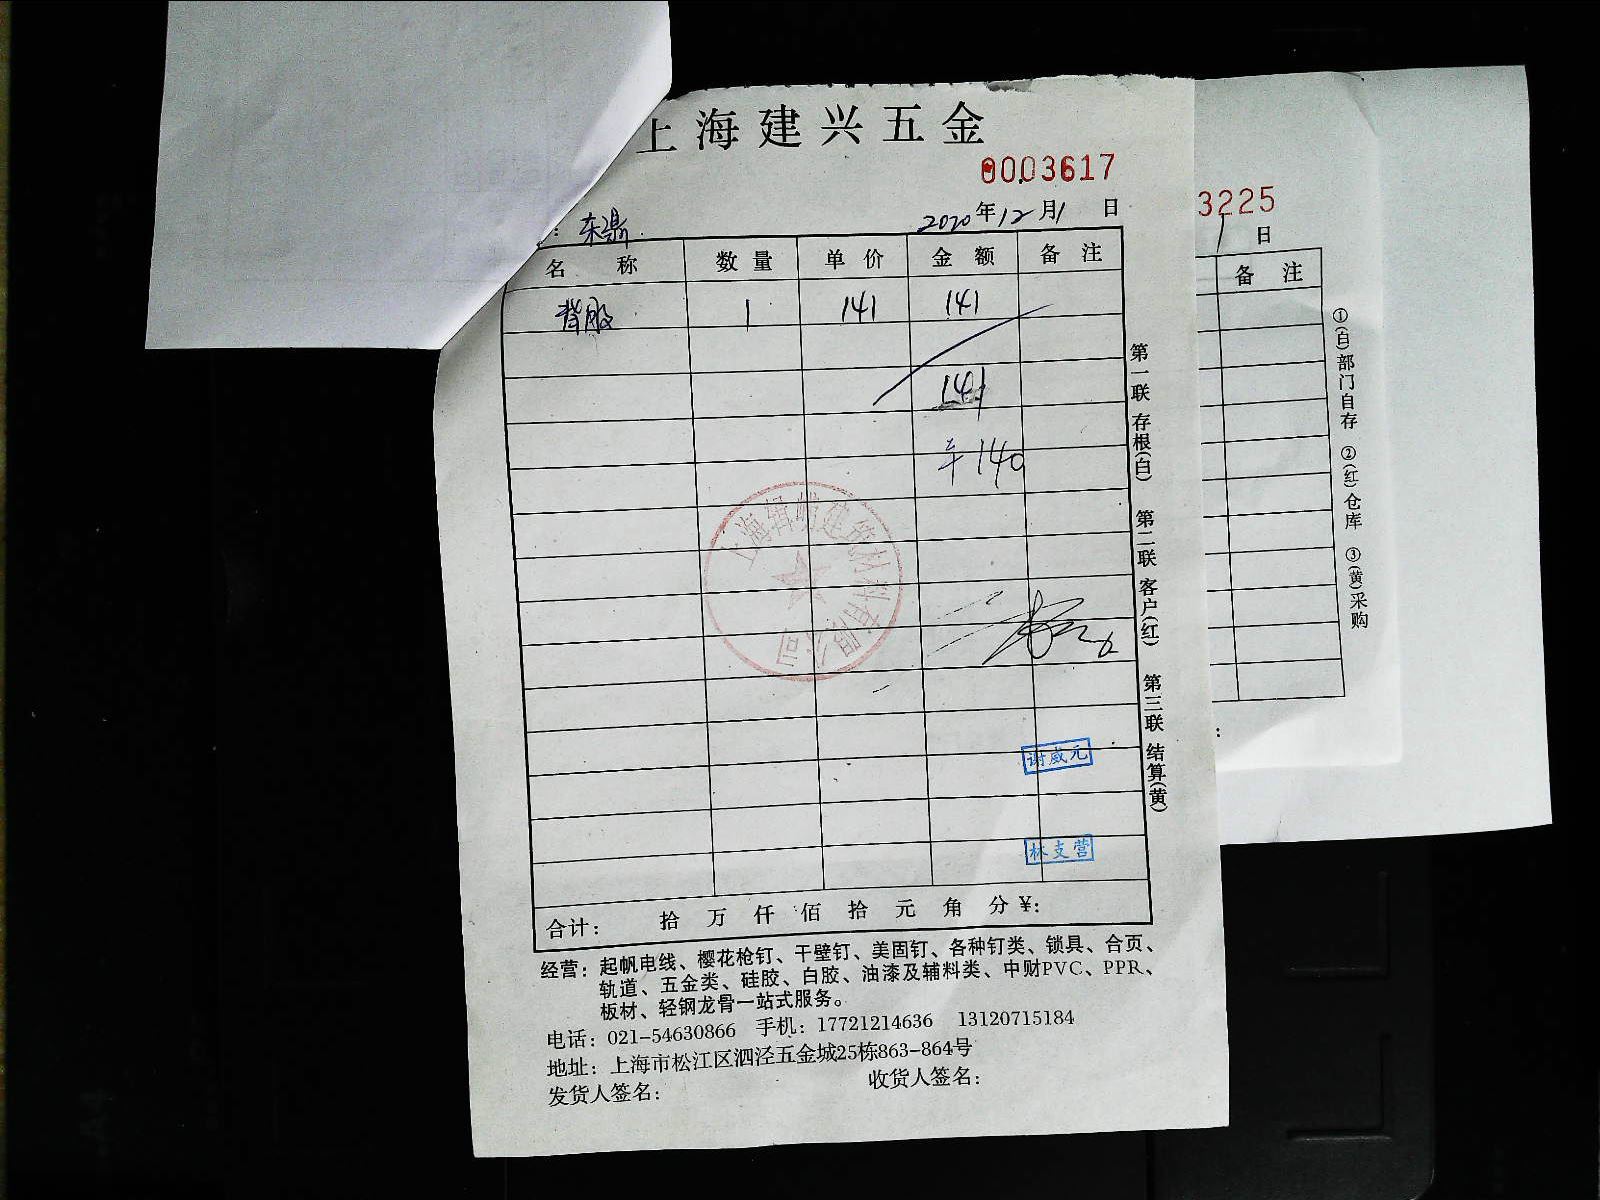 上海建兴五金
0003617
: 东鼎
2020年12月1日
名 称 数量 单价 金额 备注
背胶 1 141 141
141
平140
上海 建筑材料有限公司
谢威元
林支营
合计: 拾 万 仟 佰 拾 元 角 分 ¥:
经营: 起帆电线、樱花枪钉、干壁钉、美固钉、各种钉类、锁具、合页、
轨道、五金类、硅胶、白胶、油漆及辅料类、中财PVC、PPR、
板材、轻钢龙骨一站式服务。
电话: 021-54630866 手机: 17721214636 13120715184
地址: 上海市松江区泗泾五金城25栋863-864号
发货人签名: 收货人签名:
第一联 存根(白) 第二联 客户(红) 第三联 结算(黄)
3225
1 日
备 注
①(白)部门自存 ②(红)仓库 ③(黄)采购
: